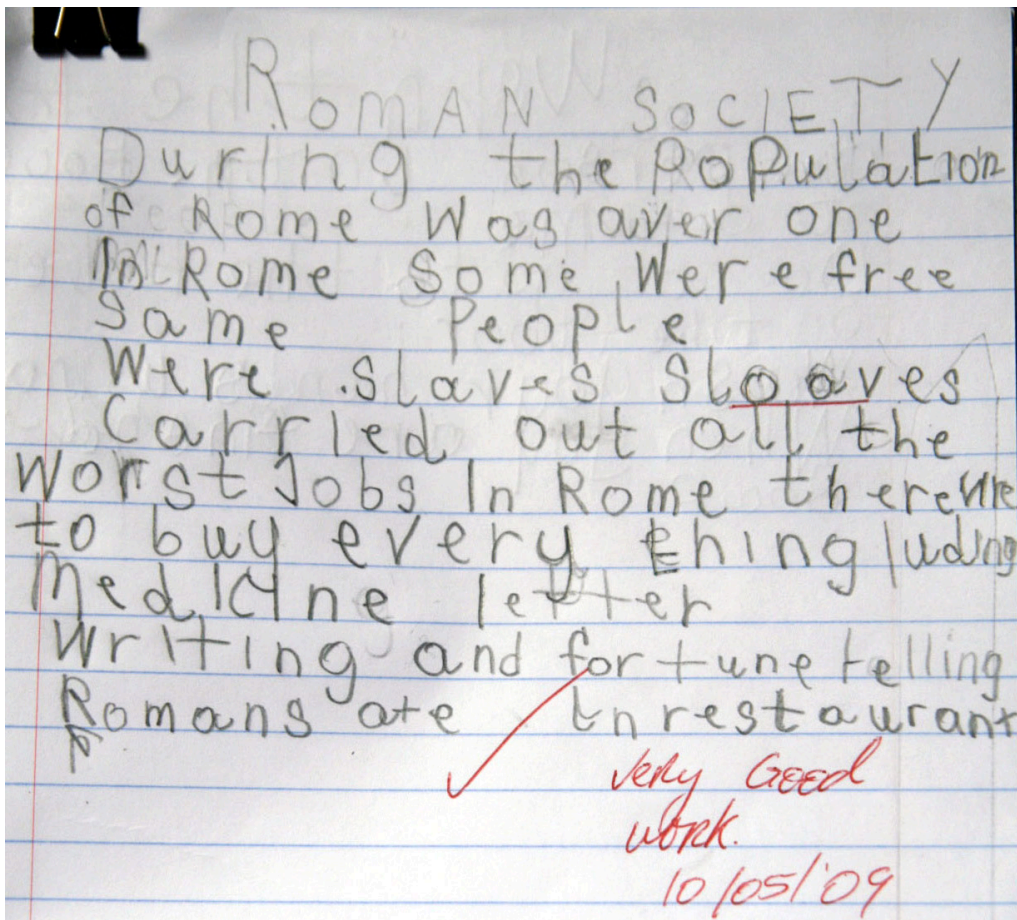 ROMAN SOCIETY
During the Population
of Rome was aver one
Rome Some Were free
Same People
Were slaves Slooaves
Carried out all the
Worst Jobs In Rome there
to buy every thing luding
Medicine letter
writing and fortune telling
Romans ate in restaurant
Very Good
work.
10/05/'09